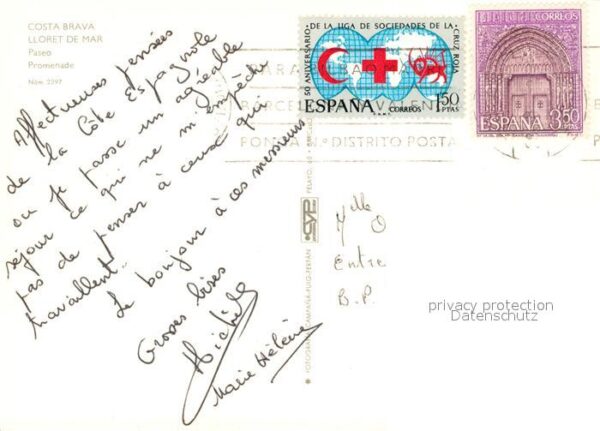 COSTA BRAVA
LLORET DE MAR
Paseo
Promenade
Núm. 2397
Affectueuses pensées
de la Côte Espagnole
ou je passe un agréable
séjour ce qui ne m'empêche
pas de penser à ceux qui
travaillent.
Le bonjour à ces messieurs
Grosses bises
Michèle
Marie Hélène
50 ANIVERSARIO DE LA LIGA DE SOCIEDADES DE LA CRUZ ROJA
ESPAÑA
CORREOS
1,50
PTAS
CORREOS
ESPAÑA
3,50
PTAS
PARA
BARCEL
VALEN
PONGA N.º DISTRITO POSTA
Mlle O
Entre
B.P.
privacy protection
Datenschutz